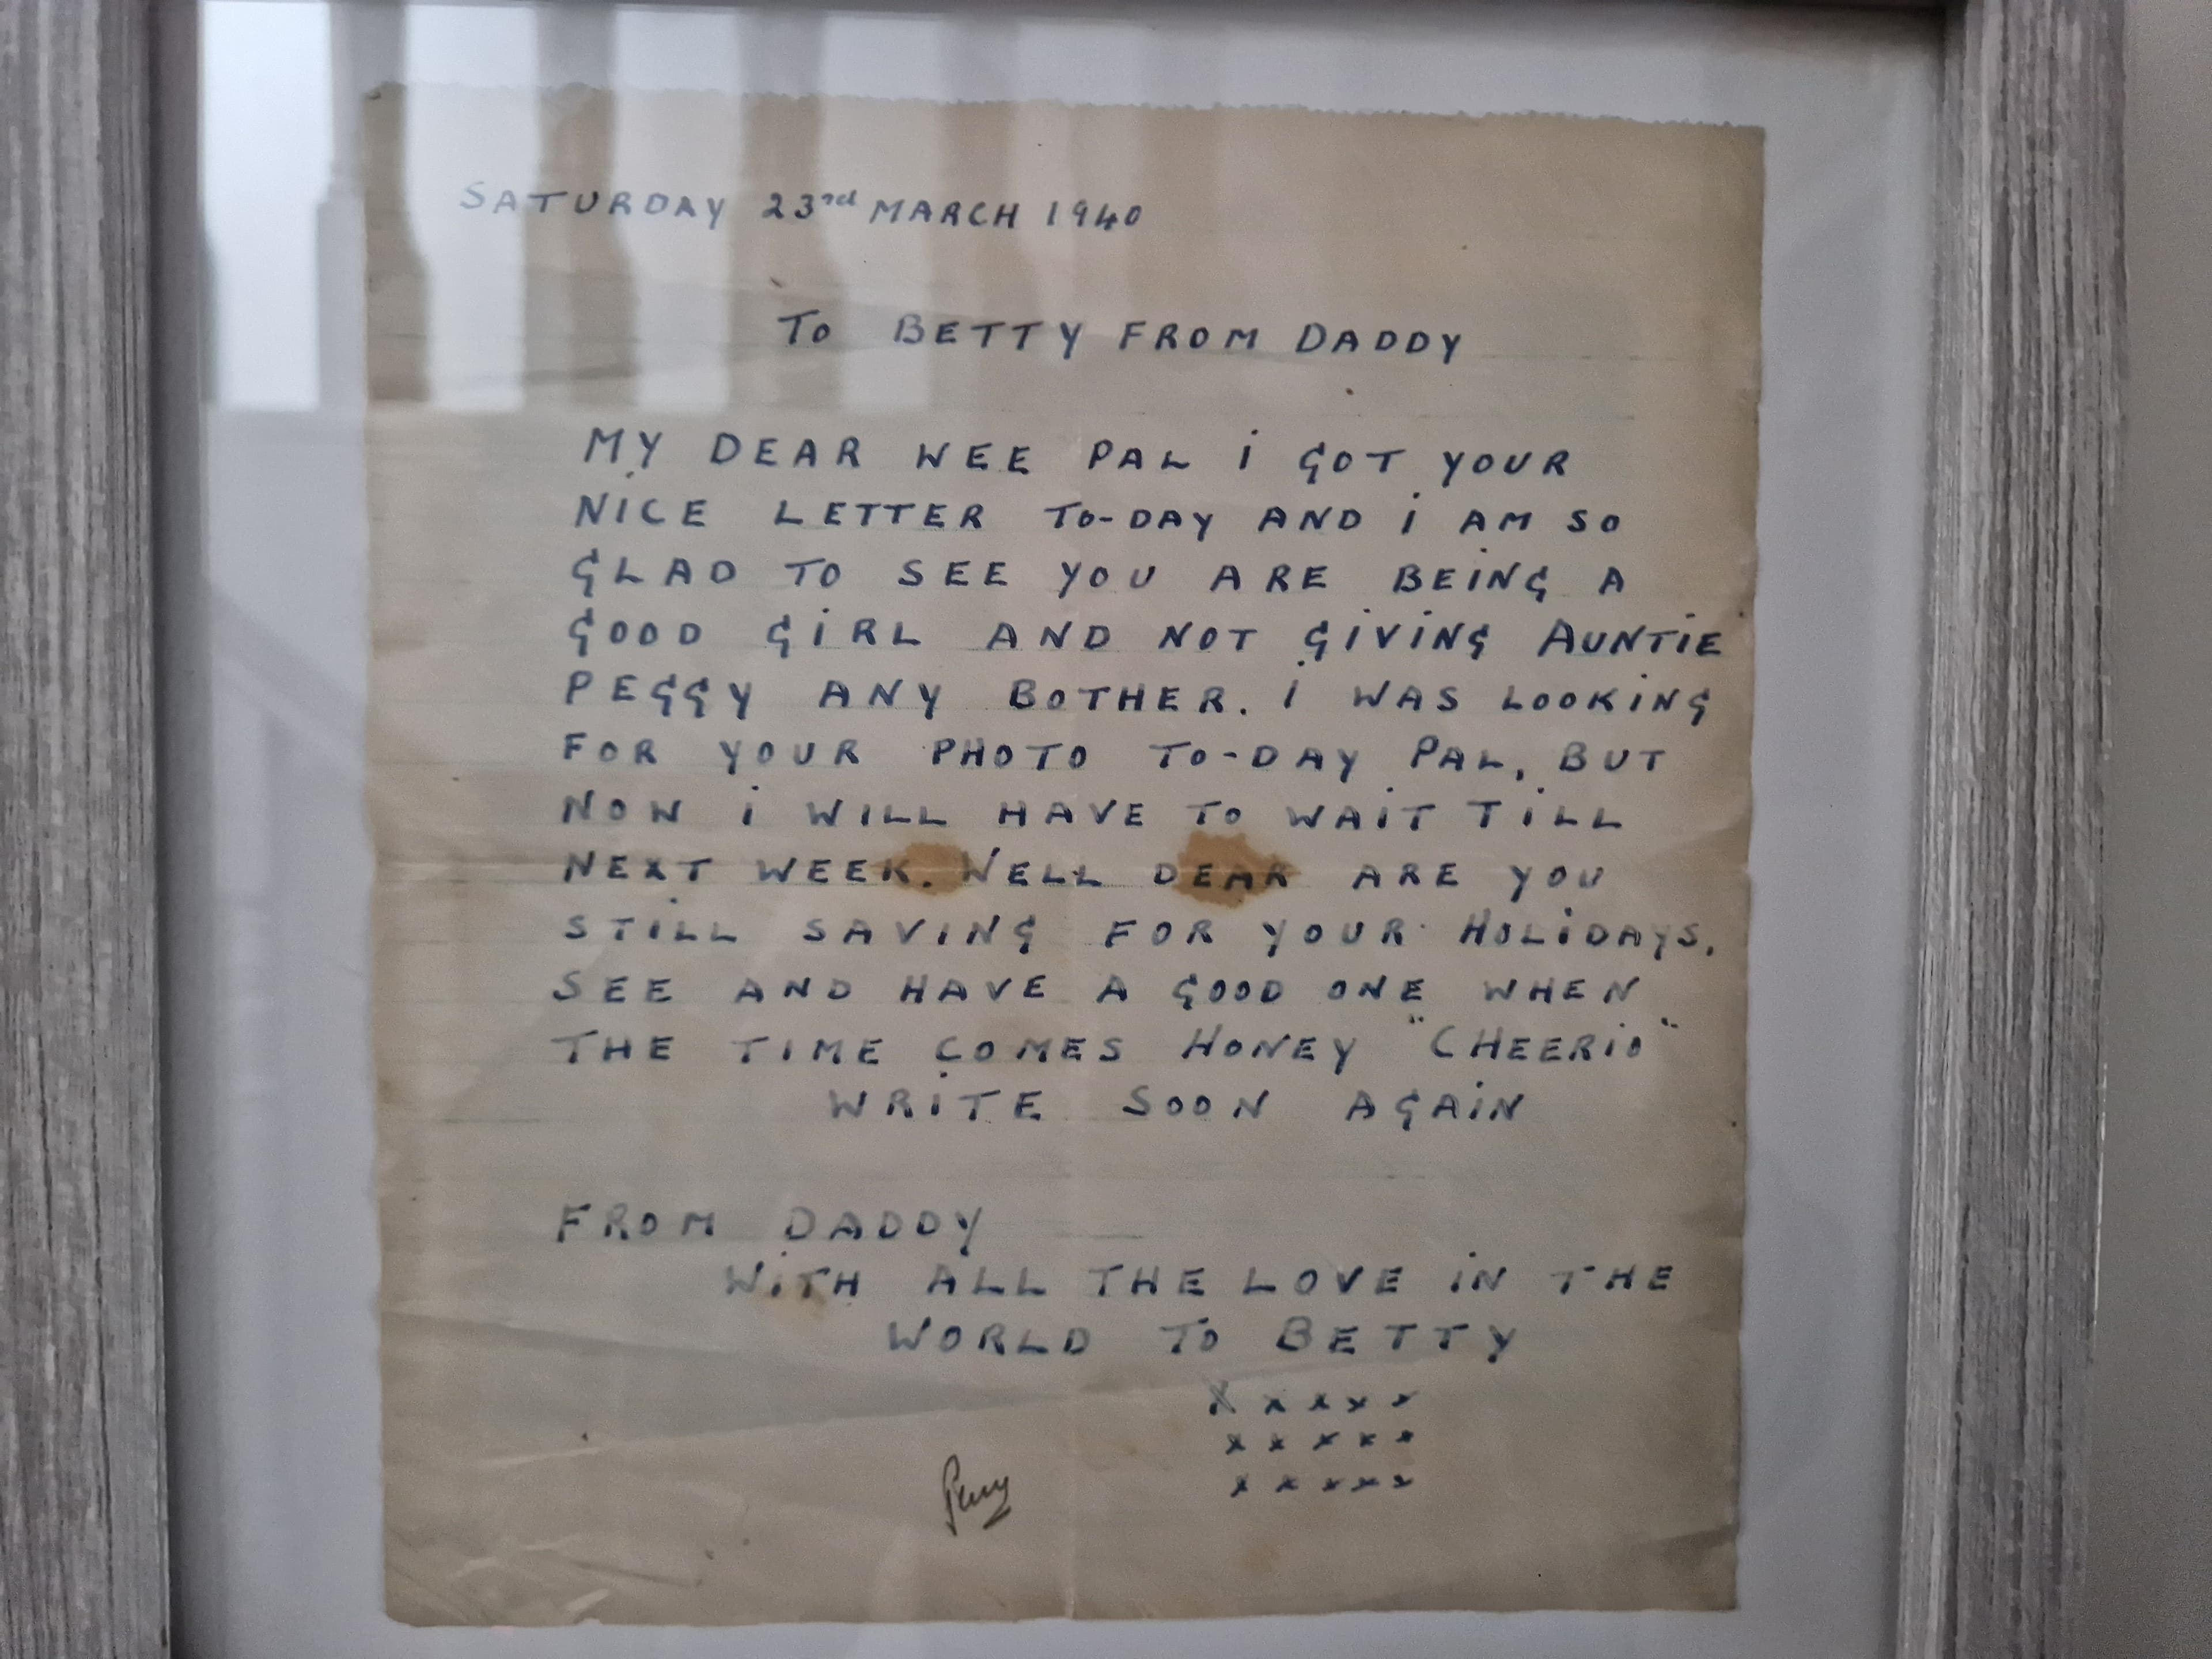 SATURDAY 23rd MARCH 1940
TO BETTY FROM DADDY
MY DEAR WEE PAL i GOT YOUR
NICE LETTER TO-DAY AND i AM SO
GLAD TO SEE YOU ARE BEiNG A
GOOD GiRL AND NOT GiViNG AUNTiE
PEGGY ANY BOTHER. i WAS LOOKiNG
FOR YOUR PHOTO TO-DAY PAL, BUT
NOW i WiLL HAVE TO WAiT TiLL
NEXT WEEK. WELL DEAR ARE YOU
STiLL SAVING FOR YOUR HOLiDAYS.
SEE AND HAVE A GOOD ONE WHEN
THE TIME COMES HONEY "CHEERiO"
WRiTE SOON AGAiN
FROM DADDY
WiTH ALL THE LOVE iN THE
WORLD TO BETTY
X x x x x
x x x x x
x x x x x